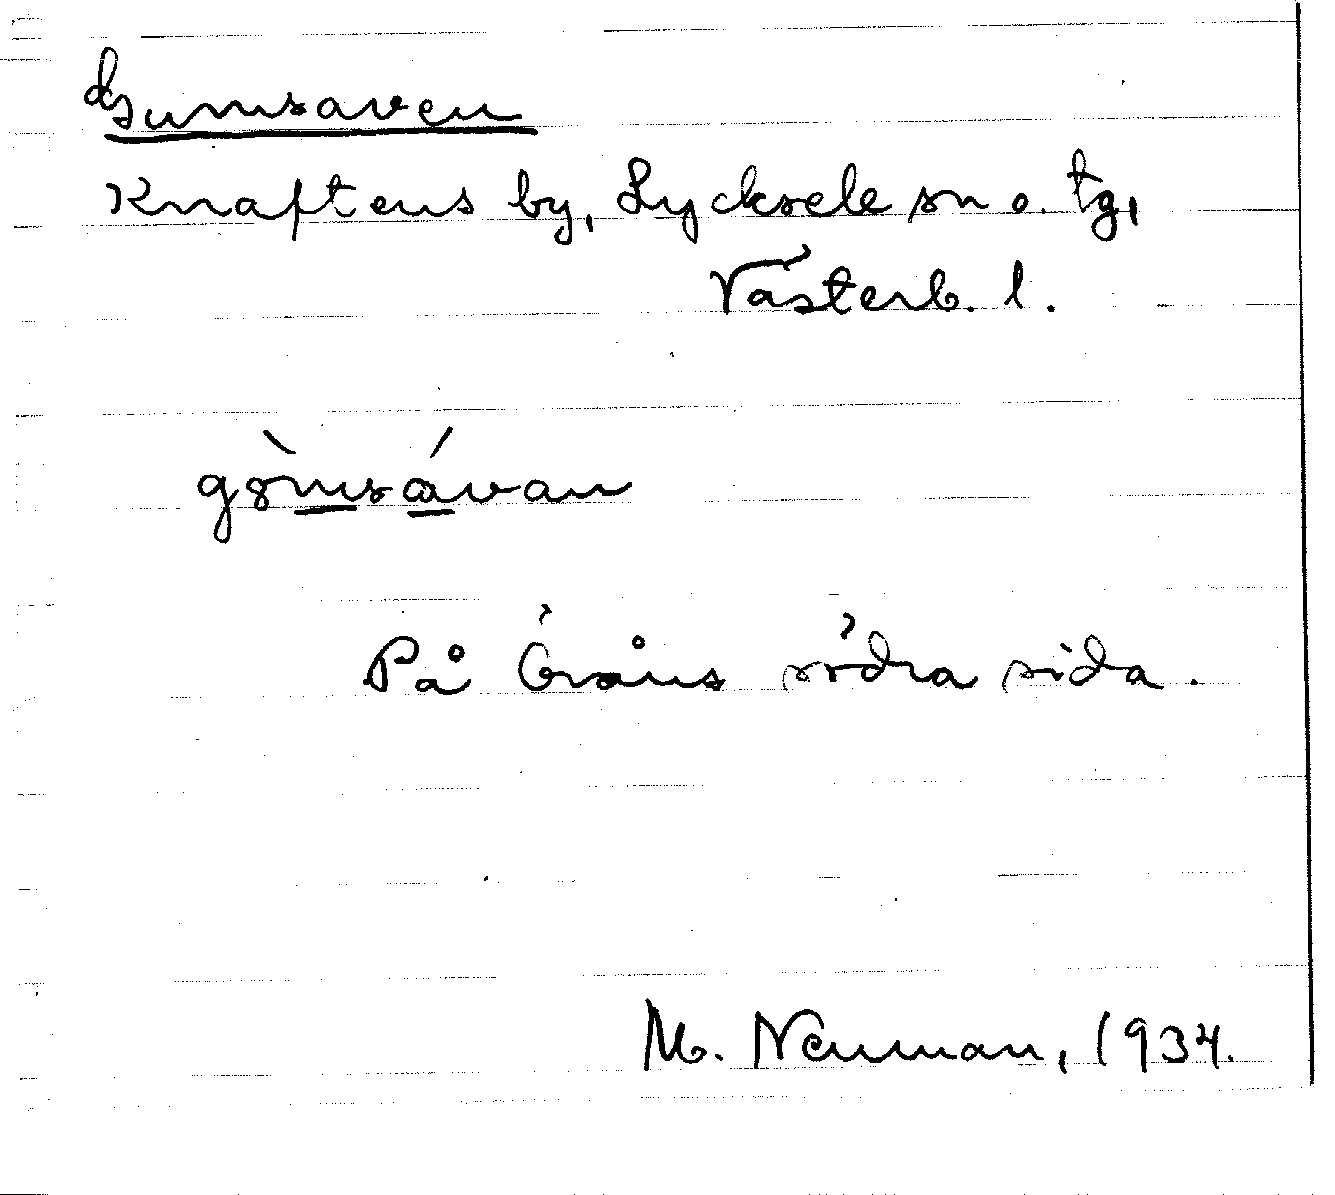 Gumsaven
Knaftens by, Lycksele sn o. tg,
Västerb. l.
gòmsávan
På Öråns södra sida.
M. Neuman, 1934.